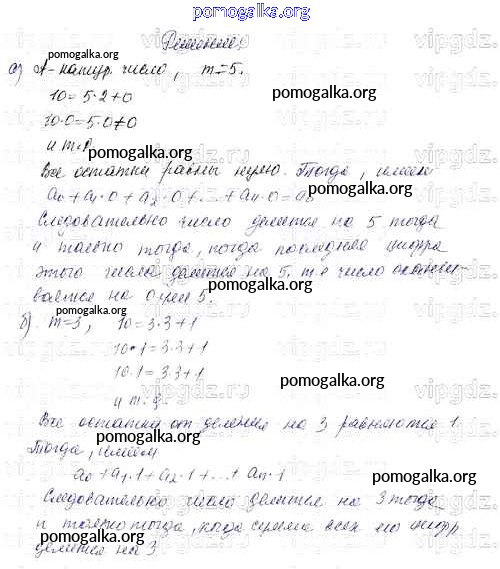 pomogalka.org
Решение:
pomogalka.org
а) А – натур. число, m=5.
10=5·2+0
pomogalka.org
10·0=5·0+0
и т.д.
pomogalka.org
Все остатки равны нулю. Тогда, имеем
pomogalka.org
a₀+a₁·0+a₂·0+...+aₙ·0=a₀
Следовательно число делится на 5 тогда
и только тогда, когда последняя цифра
pomogalka.org
этого числа делится на 5, т.е число оканчи-
вается на 0 или 5.
pomogalka.org
б) m=3, 10=3·3+1
pomogalka.org
10·1=3·3+1
10·1=3·3+1
pomogalka.org
и т.д.
Все остатки от деления на 3 равняются 1.
pomogalka.org
Тогда, имеем
a₀+a₁·1+a₂·1+...+aₙ·1
pomogalka.org
Следовательно число делится на 3 тогда
pomogalka.org
и только тогда, когда сумма всех его цифр
делится на 3.